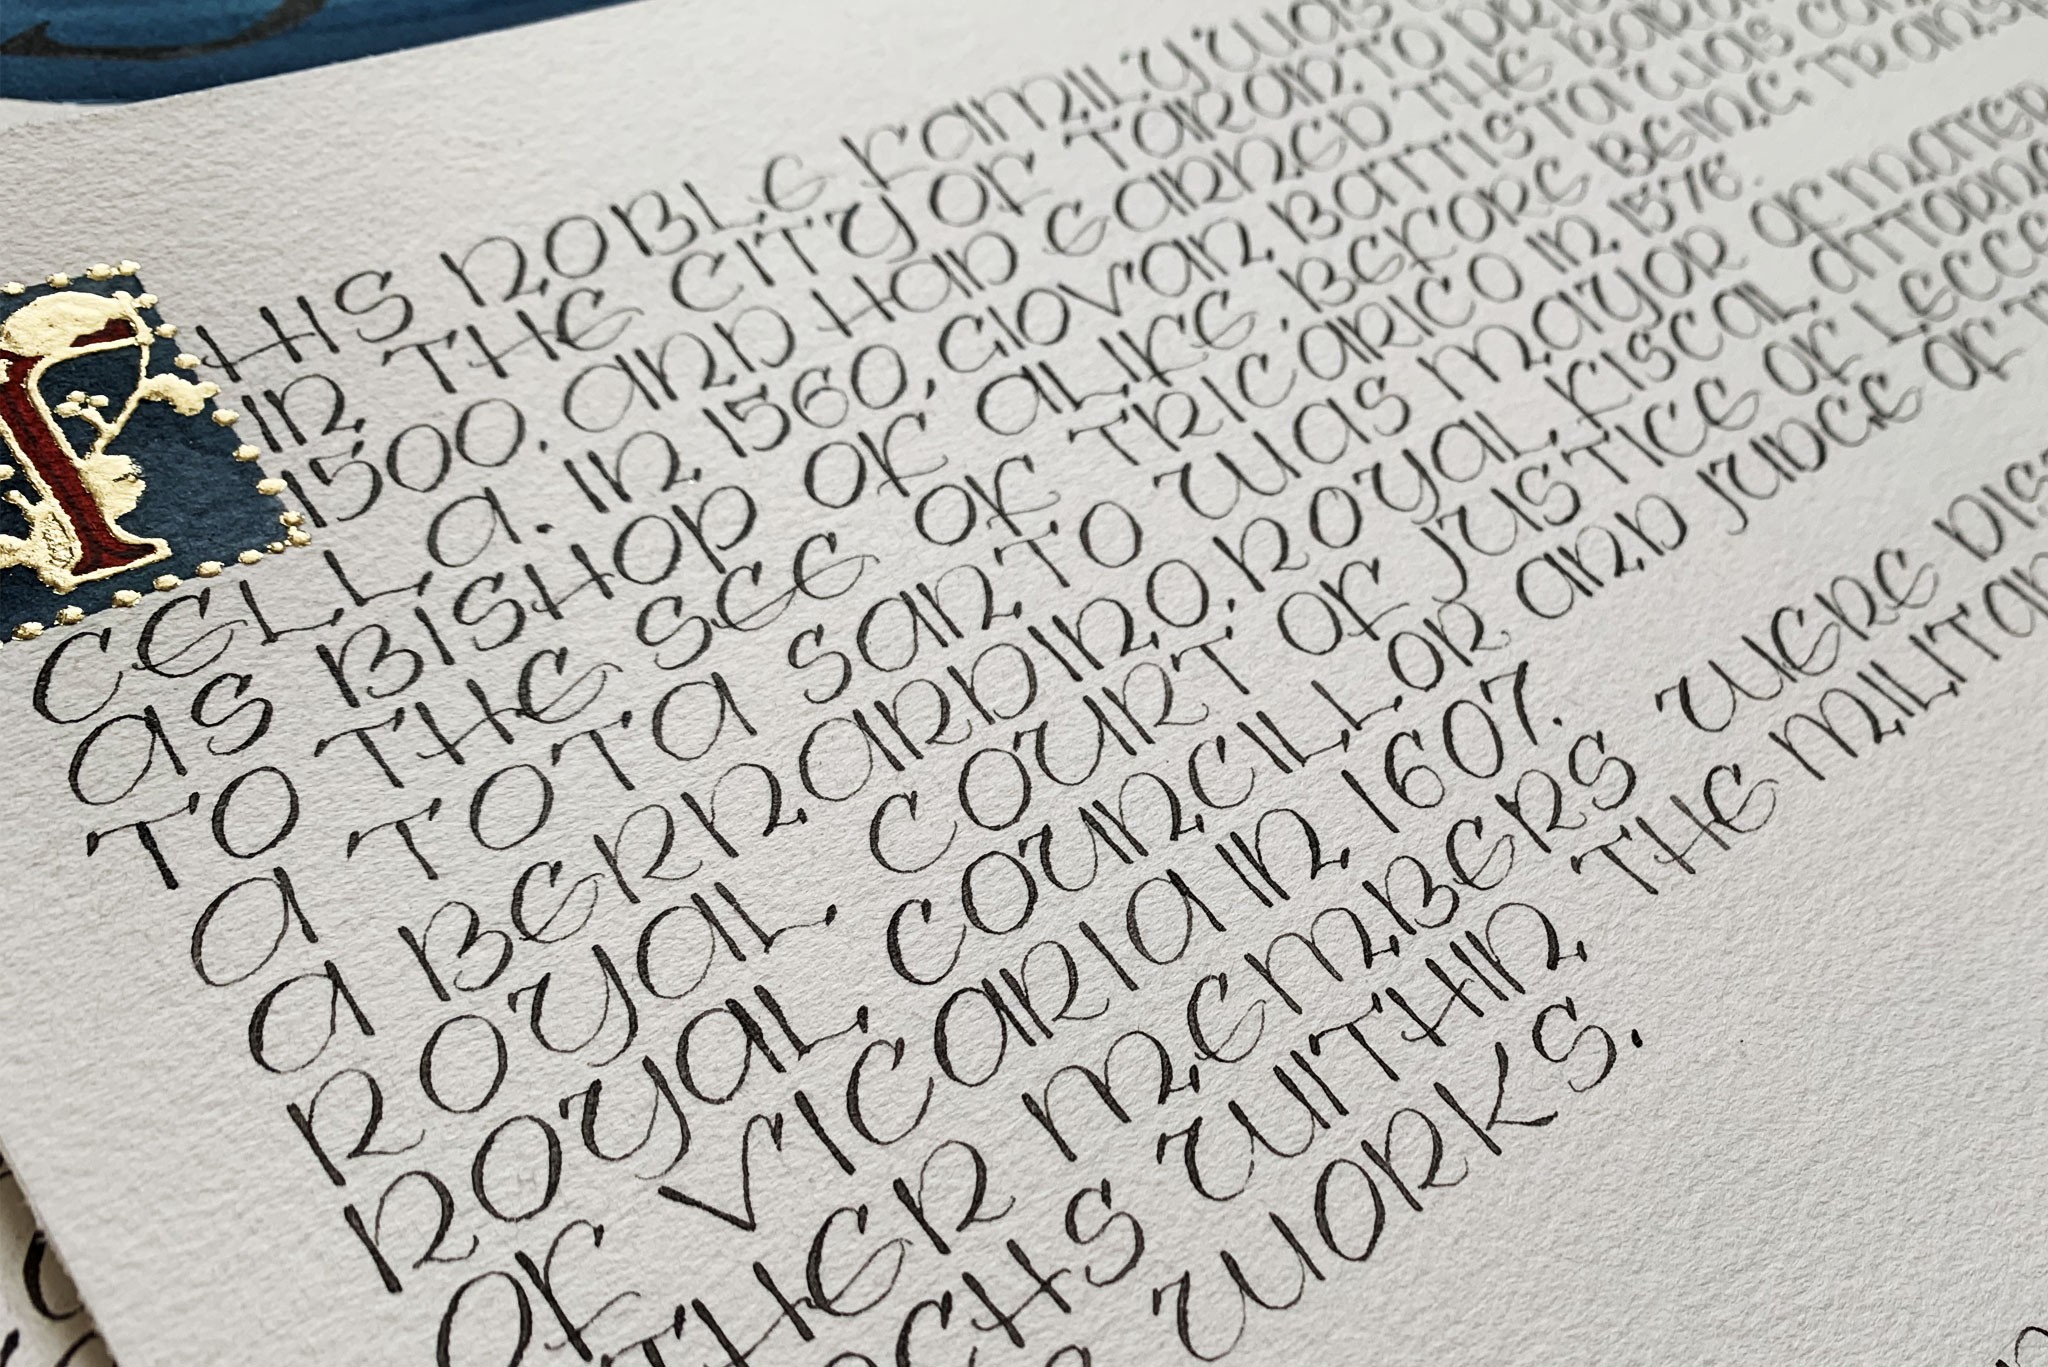 THIS NOBLE FAMILY WAS
IN THE CITY OF TARANTO
1500. AND HAD EARNED THE
CELLA. IN 1560, GIOVAN BATTISTA WAS CON
AS BISHOP OF ALIFE, BEFORE BEING TRANS
TO THE SEE OF TRICARICO IN 1576.
A TOTA SANTO WAS MAYOR OF MATER
A BERNARDINO, ROYAL FISCAL ATTORNE
ROYAL COURT OF JUSTICE OF LECCE
ROYAL COUNCILLOR AND JUDGE OF T
OF VICARIA IN 1607.
THER MEMBERS WERE DIS
CHS WITHIN THE MILITAR
WORKS.